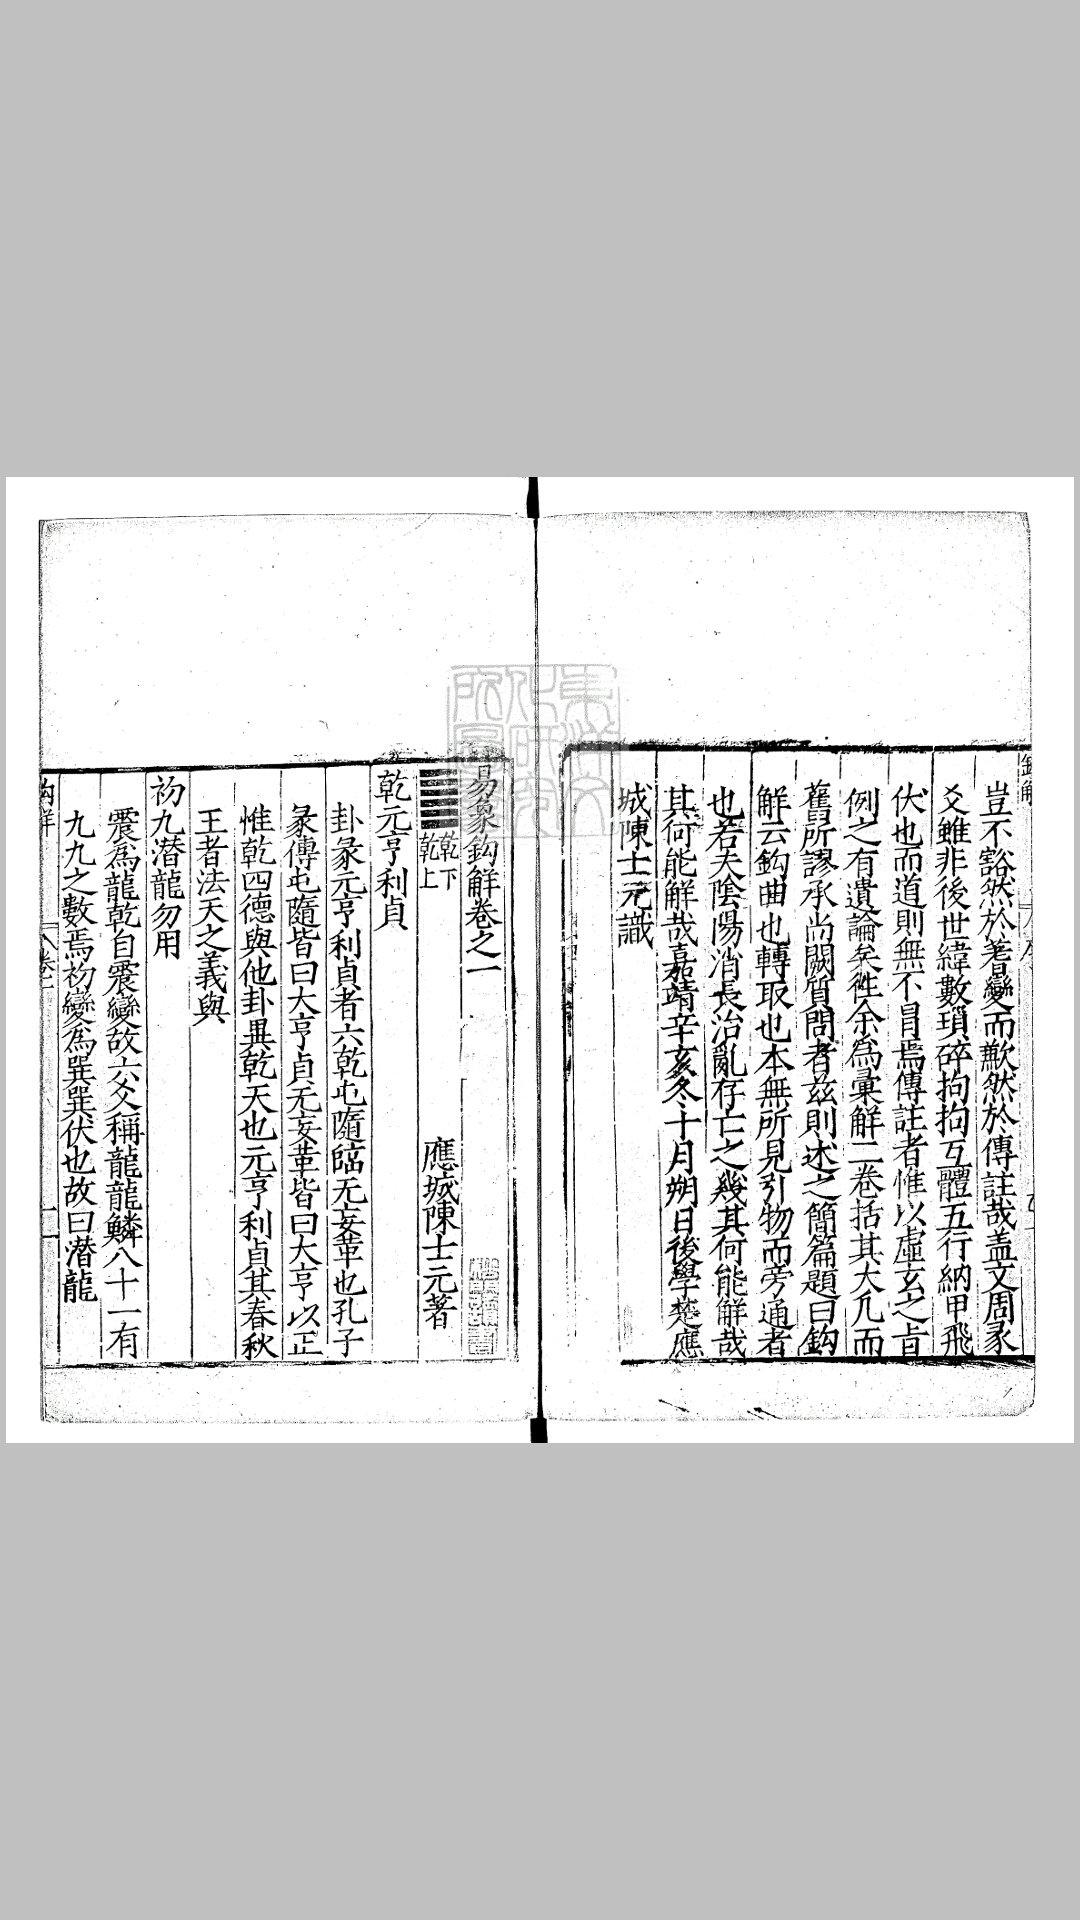 豈不豁然於蓍變而歉然於傳註哉盖文周彖
爻雖非後世緯數瑣碎拘拘互體五行納甲飛
伏也而道則無不冐焉傳註者惟以虛玄之㫖
例之有遺論矣徃余為彙解二卷括其大凡而
舊所謬承尚闕質問者茲則述之簡篇題曰鈎
解云鈎曲也轉取也本無所見引物而旁通者
也若夫陰陽消長治亂存亡之幾其何能解哉
其何能解哉嘉靖辛亥冬十月朔日後學楚應
城陳士元識
易象鈎解卷之一
應城陳士元著
乾下
乾上
乾元亨利貞
卦彖元亨利貞者六乾屯隨臨无妄革也孔子
彖傳屯隨皆曰大亨貞无妄革皆曰大亨以正
惟乾四德與他卦異乾天也元亨利貞其春秋
王者法天之義與
初九潛龍勿用
震為龍乾自震變故六爻稱龍龍鱗八十一有
九九之數焉初變為巽巽伏也故曰潛龍